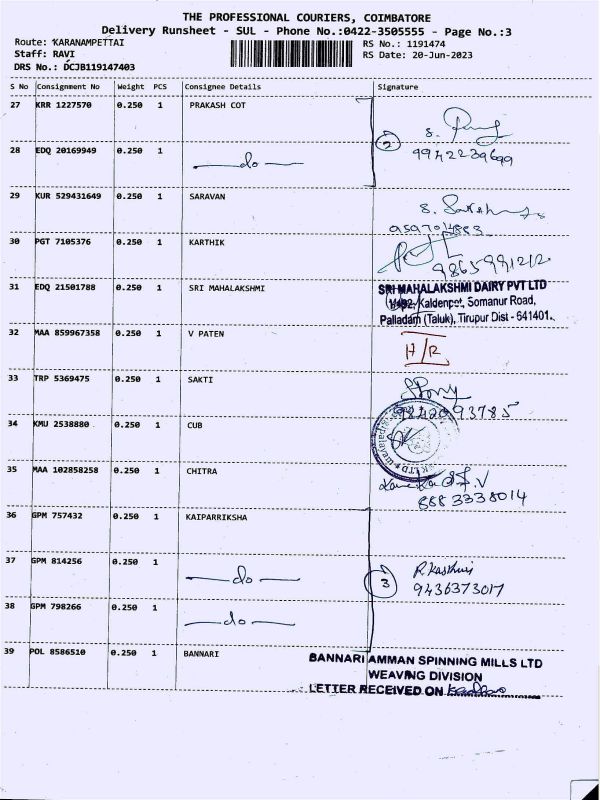 THE PROFESSIONAL COURIERS, COIMBATORE
Delivery Runsheet - SUL - Phone No.:0422-3505555 - Page No.:3
Route: KARANAMPETTAI RS No.: 1191474
Staff: RAVI RS Date: 20-Jun-2023
DRS No.: DCJB119147403
S No Consignment No Weight PCS Consignee Details Signature
27 KRR 1227570 0.250 1 PRAKASH COT
2 S.
28 EDQ 20169949 0.250 1 —do— 9942239699
29 KUR 529431649 0.250 1 SARAVAN
S.
30 PGT 7105376 0.250 1 KARTHIK
9865991212
31 EDQ 21501788 0.250 1 SRI MAHALAKSHMI SRI MAHALAKSHMI DAIRY PVT LTD
Kaldenpet, Somanur Road,
Palladam (Taluk), Tirupur Dist - 641401.
32 MAA 859967358 0.250 1 V PATEN
H/R
33 TRP 5369475 0.250 1 SAKTI
9842093785
34 KMU 2538880 0.250 1 CUB
35 MAA 102858258 0.250 1 CHITRA
8883338014
36 GPM 757432 0.250 1 KAIPARRIKSHA
37 GPM 814256 0.250 1 —do— 3 R.
9436373017
38 GPM 798266 0.250 1 —do—
39 POL 8586510 0.250 1 BANNARI BANNARI AMMAN SPINNING MILLS LTD
WEAVING DIVISION
LETTER RECEIVED ON